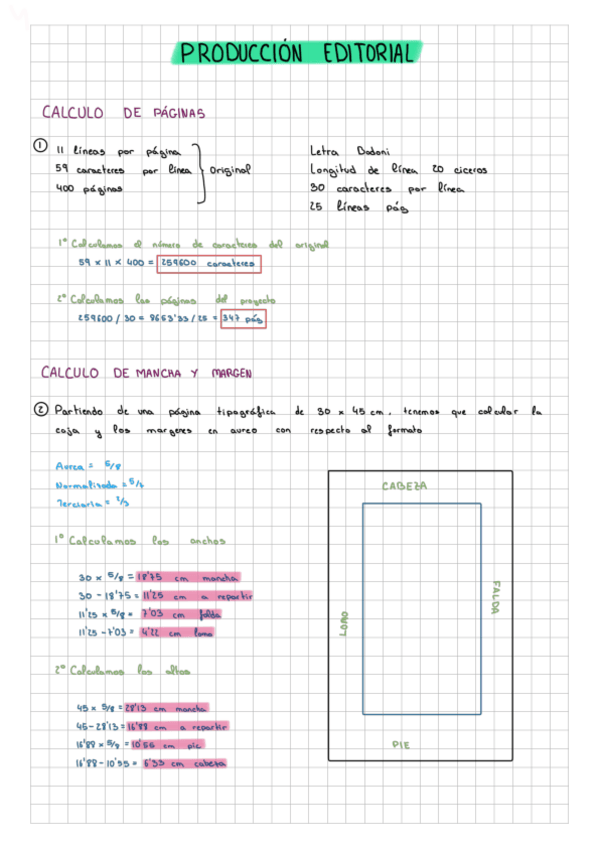 PRODUCCIÓN EDITORIAL
CALCULO DE PÁGINAS
1 11 líneas por página
59 caracteres por línea
400 páginas
Original
Letra Bodoni
Longitud de línea 20 ciceros
30 caracteres por línea
25 líneas pág
1º Calculamos el número de caracteres del original
59 x 11 x 400 = 259600 caracteres
2º Calculamos las páginas del proyecto
259600 / 30 = 8653'33 / 25 = 347 pág
CALCULO DE MANCHA Y MARGEN
2 Partiendo de una página tipográfica de 30 x 45 cm, tenemos que calcular la
caja y los margenes en aureo con respecto al formato
Aurea = 5/8
Normalizada = 5/7
Terciaria = 2/3
1º Calculamos los anchos
30 x 5/8 = 18'75 cm mancha
30 - 18'75 = 11'25 cm a repartir
11'25 x 5/8 = 7'03 cm falda
11'25 - 7'03 = 4'22 cm lomo
2º Calculamos los altos
45 x 5/8 = 28'13 cm mancha
45 - 28'13 = 16'88 cm a repartir
16'88 x 5/8 = 10'55 cm pie
16'88 - 10'55 = 6'33 cm cabeza
CABEZA
LOMO
FALDA
PIE